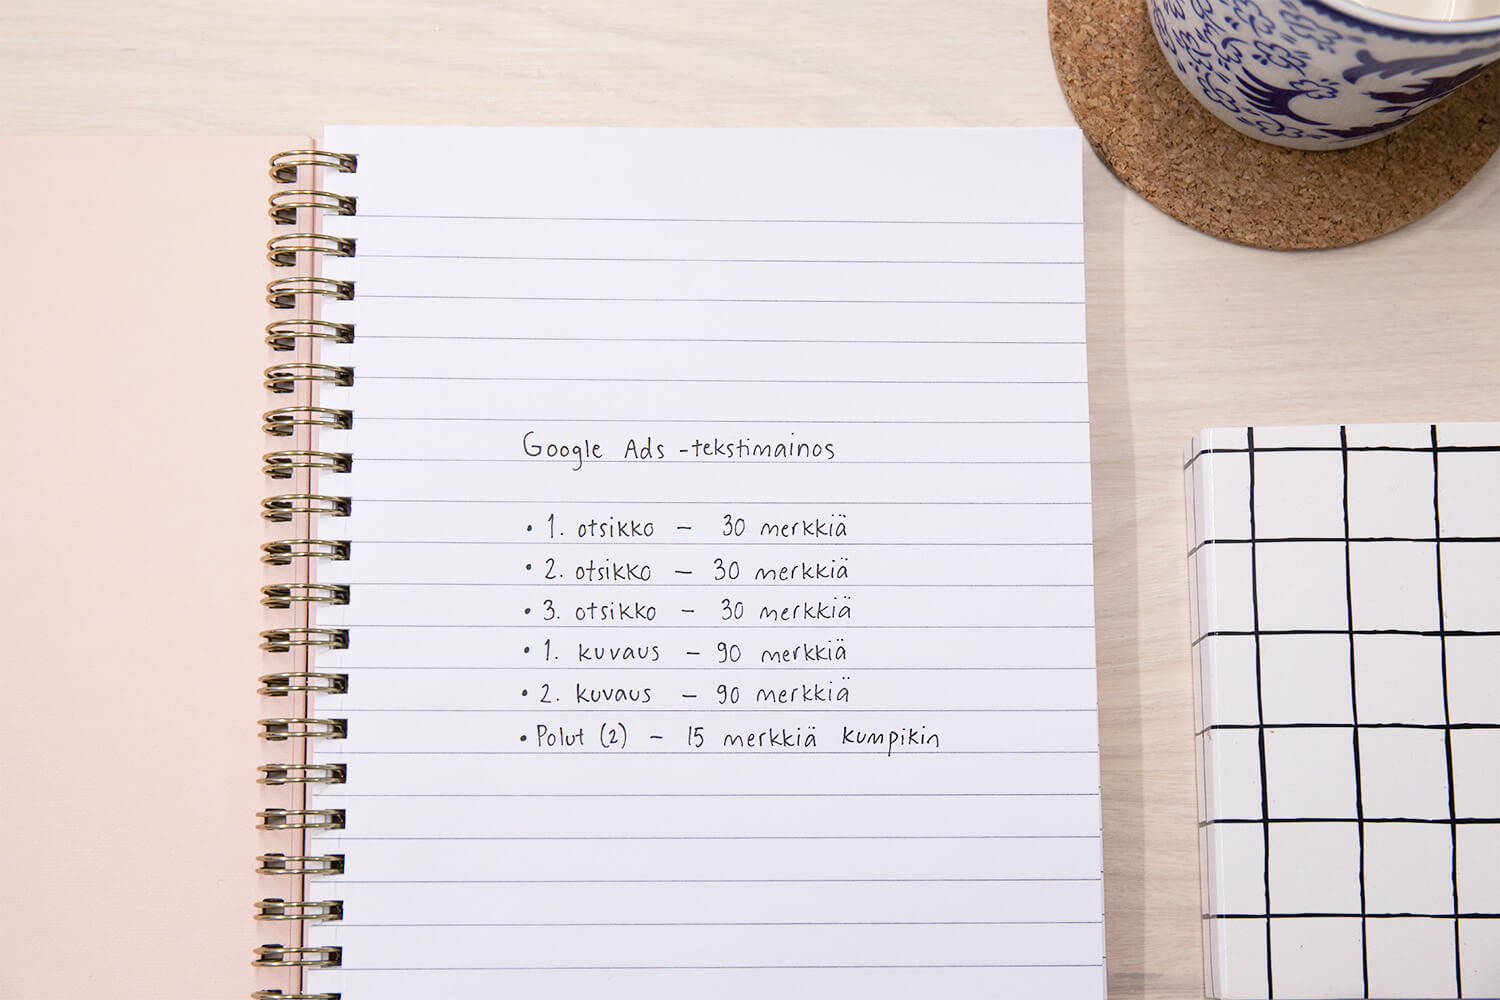 Google Ads -tekstimainos
• 1. otsikko – 30 merkkiä
• 2. otsikko – 30 merkkiä
• 3. otsikko – 30 merkkiä
• 1. kuvaus – 90 merkkiä
• 2. kuvaus – 90 merkkiä
• Polut (2) – 15 merkkiä kumpikin